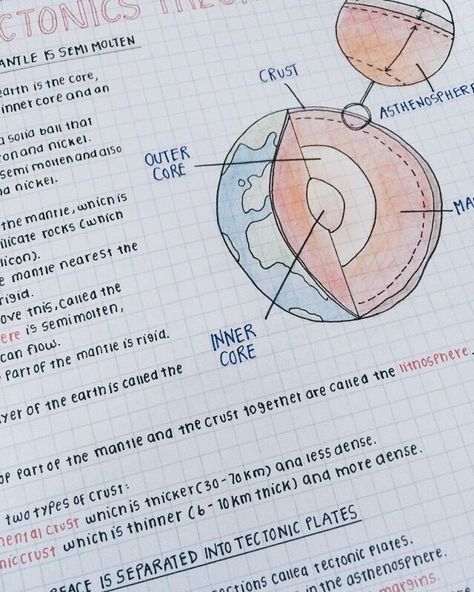 CTONICS THEO
MANTLE IS SEMI MOLTEN
earth is the core,
inner core and an
a solid ball that
iron and nickel.
semi molten and also
nd nickel.
the mantle, which is
silicate rocks (which
ilicon).
e mantle nearest the
rigid.
ove this, called the
ere is semi molten,
can flow.
part of the mantle is rigid.
yer of the earth is called the
op part of the mantle and the crust together are called the lithosphere.
two types of crust:
nental crust which is thicker (30-70km) and less dense.
nic crust which is thinner (6-10km thick) and more dense.
RFACE IS SEPARATED INTO TECTONIC PLATES
ections called tectonic plates.
in the asthenosphere.
margins.
CRUST
ASTHENOSPHERE
OUTER
CORE
MA
INNER
CORE